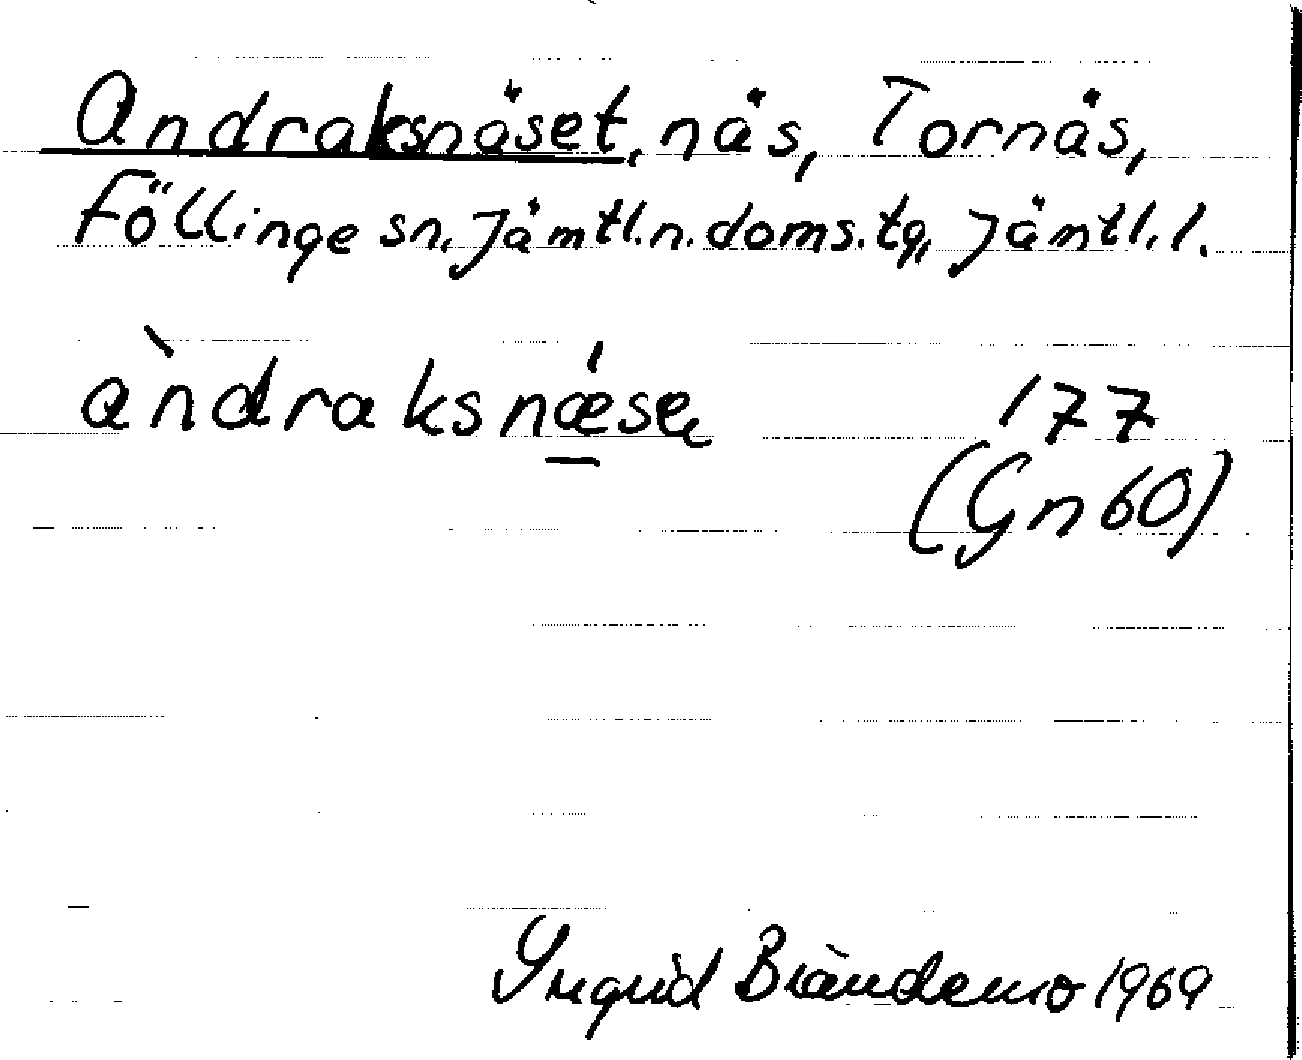 Andraksnäset, näs, Tornäs,
Föllinge sn, Jämtl.n.doms.tg, Jämtl.l.
àndraksnǽse
177
(Gn 60)
Yngrid Brändemo 1969